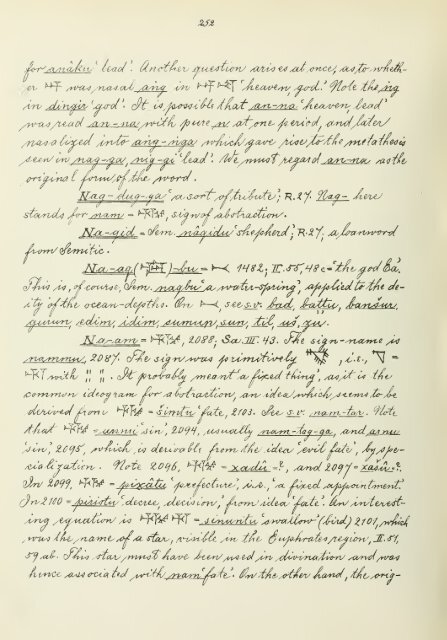 252
for anâku 'lead'. Another question arises at once, as to wheth-
er 𒀭 was nasal ang in 𒀭 𒀭 'heaven, god.' Note the ng
in dingir 'god'. It is possible that an-na 'heaven, lead'
was read an-na, with pure n at one period, and later
nasalized into ang-nga which gave rise to the metathesis
seen in nag-ga, nig-gi 'lead'. We must regard an-na as the
original form of the word.
Nag-dug-ga 'a sort of tribute'; R.27. Nag- here
stands for nam = , sign of abstraction.
Na-gid = Sem. nâqidu 'shepherd'; R.27, a loanword
from Semitic.
Na-ag( )-bu = 1482; II.55,48c = 'the god Ea.'
This is, of course, Sem. nagbu 'a water-spring', applied to the de-
ity of the ocean-depths. On , see s.v. bad, battu, banšur,
gurun, edim, idim, sumun, sun, til, uš, zu.
Na-am = , 2088, Sa. III. 43. The sign-name is
nammu, 2087. The sign was primitively , i.e., =
with " ". It probably meant 'a fixed thing', as it is the
common ideogram for abstraction, an idea which seems to be
derived from = šimtu 'fate', 2103. See s.v. nam-tar. Note
that = annu 'sin', 2094, usually nam-tag-ga, and
'sin', 2095, which is derivable from the idea 'evil fate', by spe-
cialization. Note 2096, = xadû = ?, and 2097 = ?.
In 2099, = pixâtu 'prefecture', i.e., 'a fixed appointment.'
In 2100 = pirištu 'decree, decision,' from idea 'fate'. An interest-
ing equation is = sinuntu 'swallow' (bird) 2101, which
was the name of a star, visible in the Euphrates region, II. 51,
59 ab. This star must have been used in divination and was
hence associated with nam 'fate'. On the other hand, the orig-